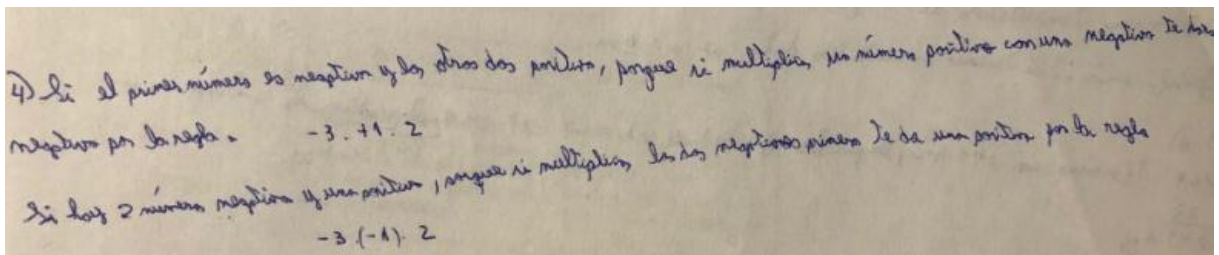 4) Si el primer número es negativo y los otros dos positivos, porque si multiplicas un número positivo con uno negativo te da
negativo por la regla. -3 . +1 . 2
Si hay 2 números negativos y uno positivo, porque si multiplicas los dos negativos primero te da uno positivo por la regla
-3 . (-1) . 2